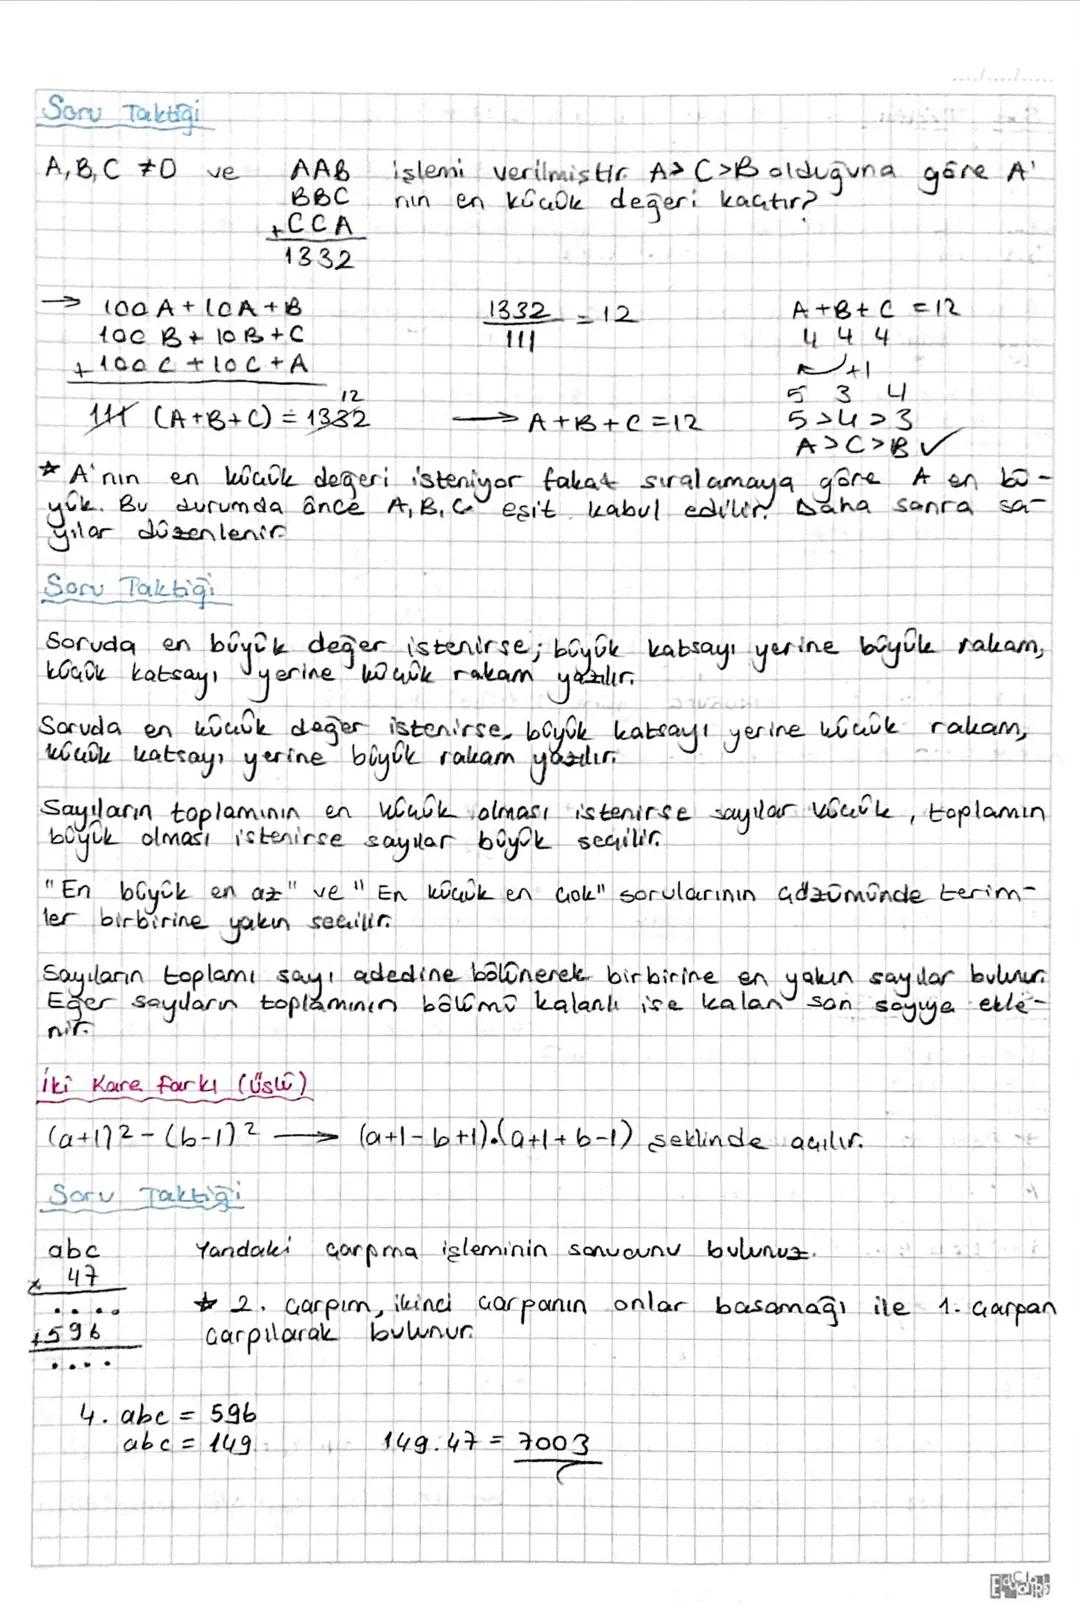 Soru Taktiği
A, B, C ≠0 ve AAB işlemi verilmiştir. A>C>B olduğuna göre A'
BBC nın en küçük değeri kaçtır?
+CCA
1332
→ 100A+10A+B
100B+10B+C
+100C+10C+A
111 (A+B+C) = 1332
12
1332 = 12
111
→ A+B+C=12
A+B+C=12
4 4 4
+1
5 3 4
5>4>3
A>C>B ✓
* A'nın en küçük değeri isteniyor fakat sıralamaya göre A en bü-
yük. Bu durumda önce A, B, C eşit kabul edilir. Daha sonra sa-
yılar düzenlenir.
Soru Taktiği
Soruda en büyük değer istenirse; büyük katsayı yerine büyük rakam,
küçük katsayı yerine küçük rakam yazılır.
Soruda en küçük değer istenirse, büyük katsayı yerine küçük rakam,
küçük katsayı yerine büyük rakam yazılır.
Sayıların toplamının en küçük olması istenirse sayılar küçük, toplamın
büyük olması istenirse sayılar büyük seçilir.
"En büyük en az" ve "En küçük en çok" sorularının çözümünde terim-
ler birbirine yakın seçilir.
Sayıların toplamı sayı adedine bölünerek birbirine en yakın sayılar bulunur.
Eğer sayıların toplamının bölümü kalanlı ise kalan son sayıya ekle-
nir.
İki Kare Farkı (Üslü)
(a+1)2-(b-1)2 → (a+1-b+1).(a+1+b-1) şeklinde açılır.
Soru Taktiği
abc Yandaki çarpma işleminin sonucunu bulunuz.
x 47
.... * 2. çarpım, ikinci çarpanın onlar basamağı ile 1. çarpan
+596 çarpılarak bulunur.
....
4. abc = 596
abc = 149 149.47 = 7003